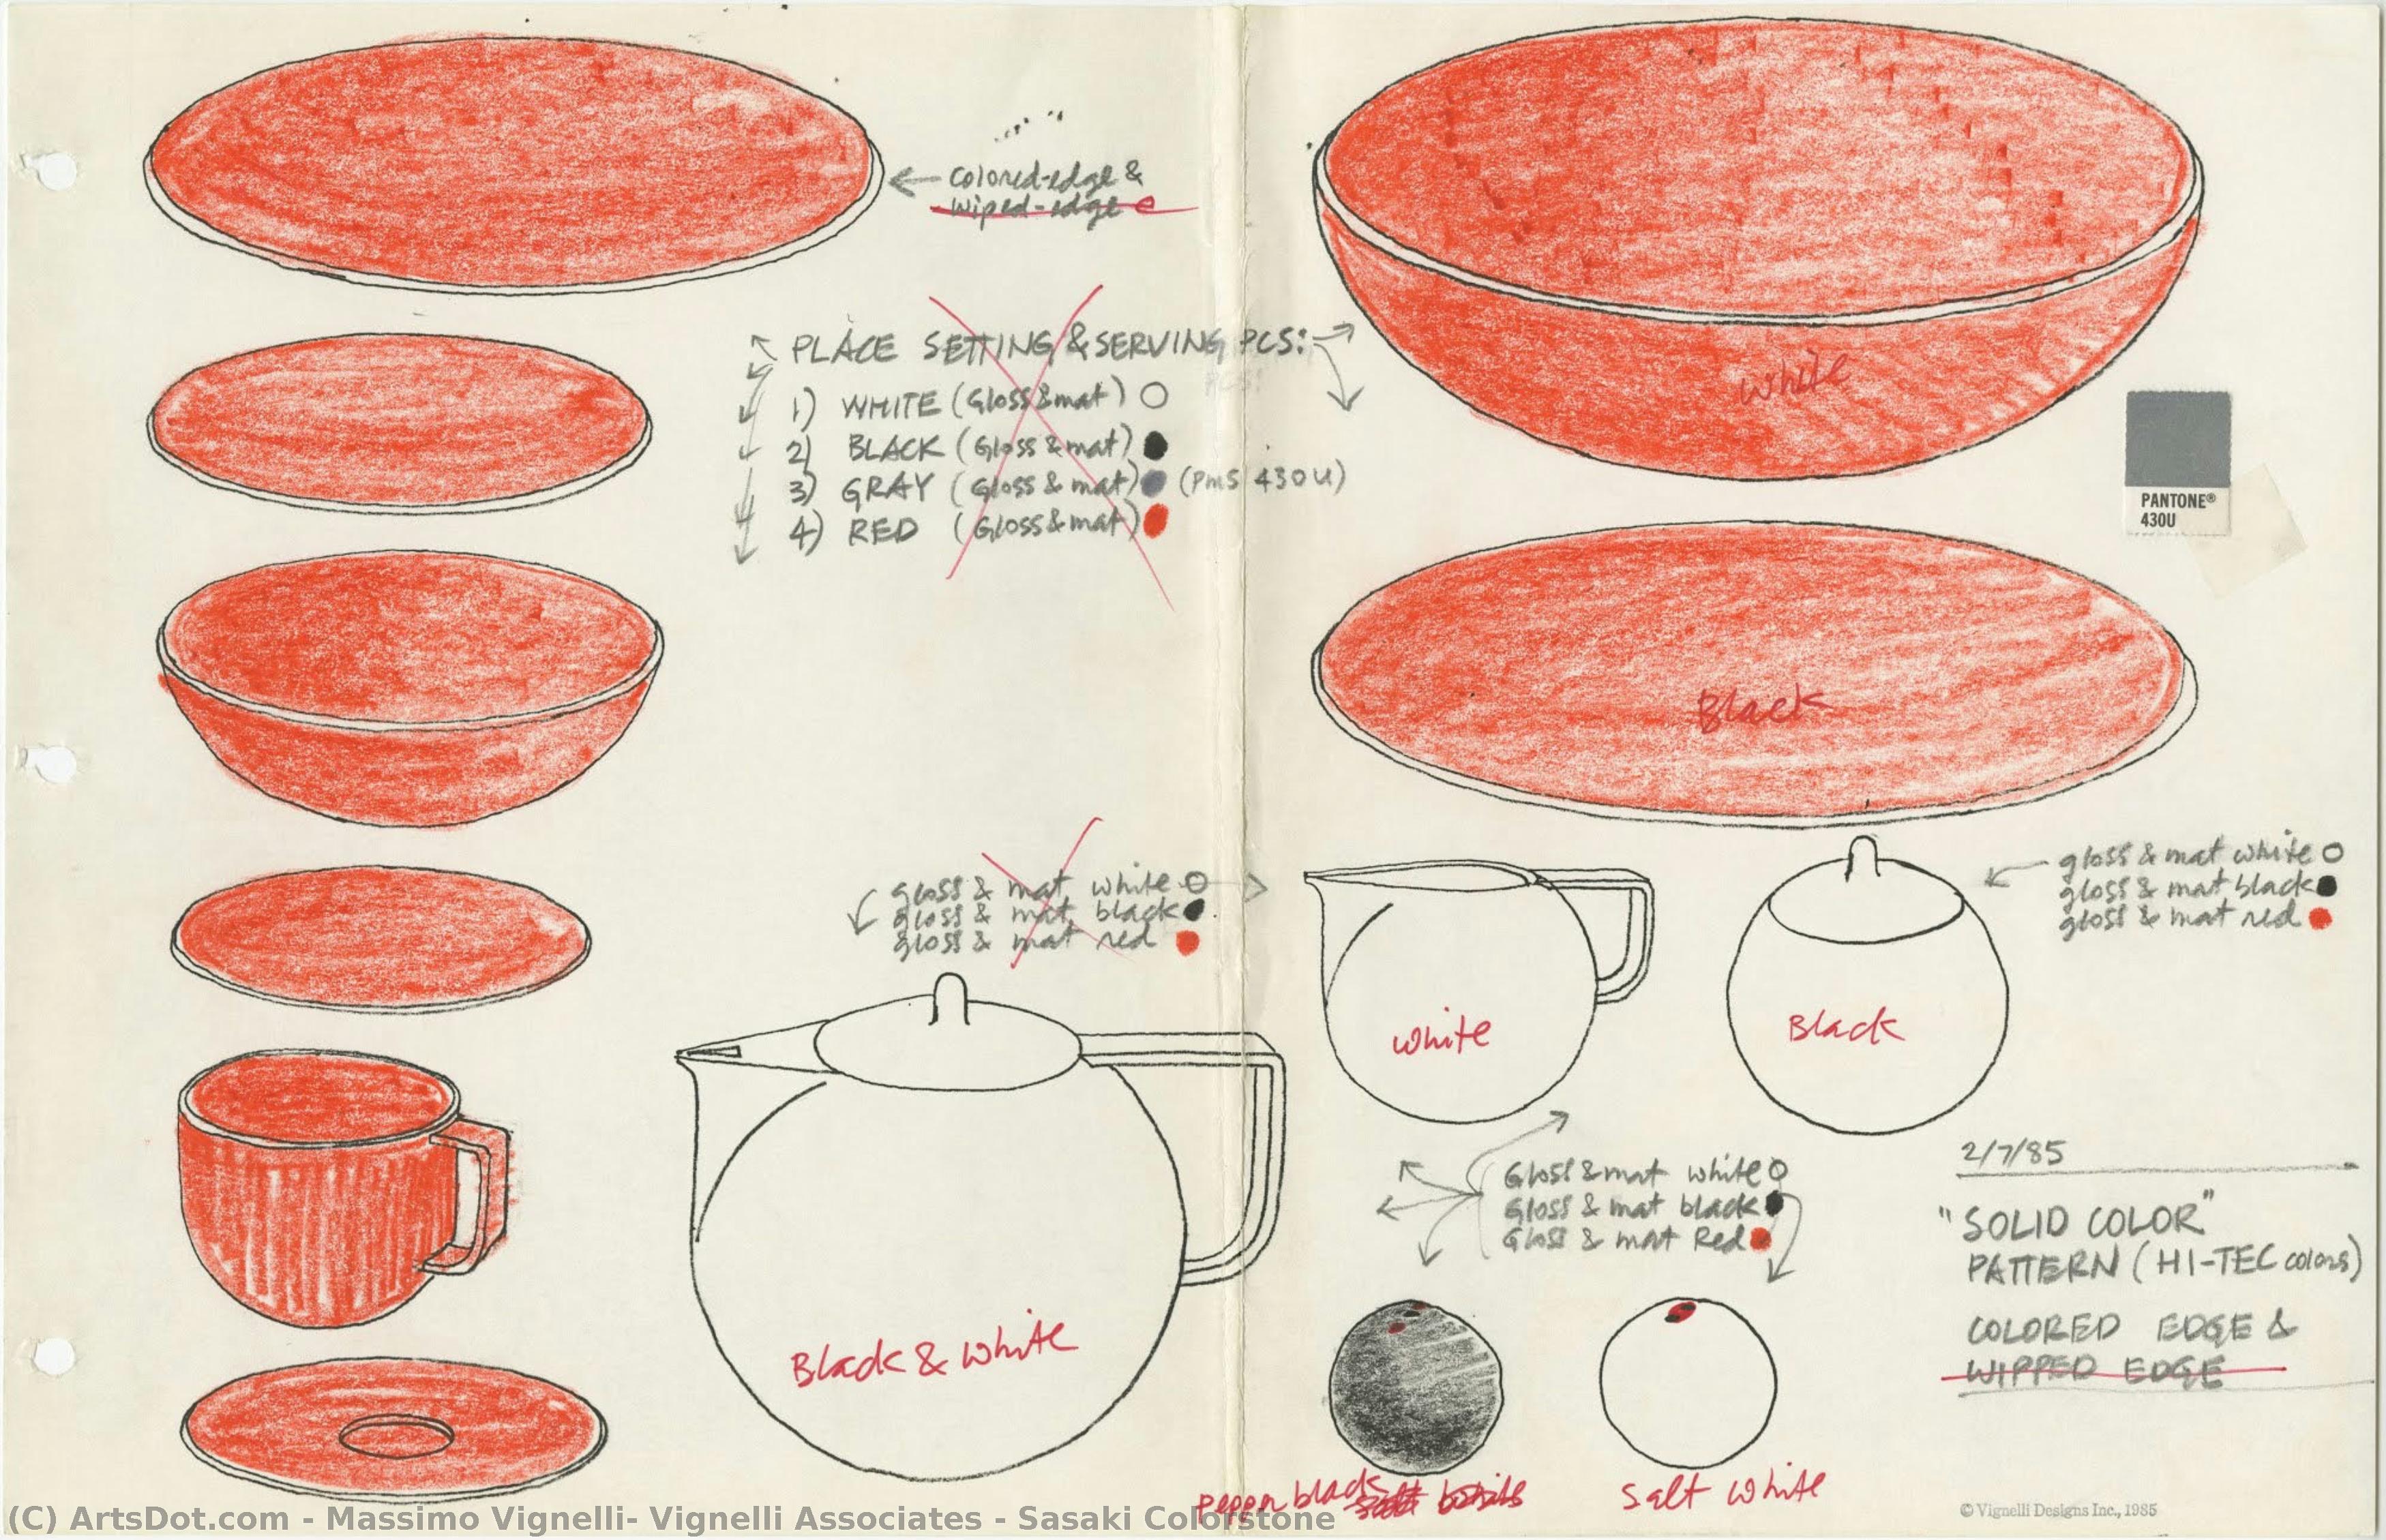 colored-edge &
wiped-edge
PLACE SETTING & SERVING PCS:
1) WHITE (Gloss & mat)
2) BLACK (Gloss & mat)
3) GRAY (Gloss & mat) (PMS 430U)
4) RED (Gloss & mat)
White
PANTONE®
430U
Black
gloss & mat white
gloss & mat black
gloss & mat red
gloss & mat white
gloss & mat black
gloss & mat red
White
Black
Black & White
Gloss & mat white
Gloss & mat black
Gloss & mat Red
2/7/85
"SOLID COLOR"
PATTERN (HI-TEC colors)
COLORED EDGE &
WIPPED EDGE
pepper black
Salt White
© Vignelli Designs Inc., 1985
(C) ArtsDot.com - Massimo Vignelli- Vignelli Associates - Sasaki Colorstone